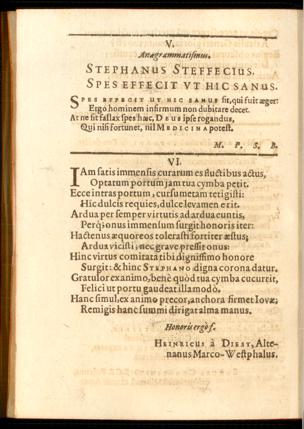 V.
Anagrammatismus.
STEPHANUS STEFFECIUS.
SPES EFFECIT VT HIC SANUS.
SPES EFFECIT UT HIC SANUS sit, qui fuit æger:
Ergo hominem infirmum non dubitare decet.
At ne sit fallax spes hæc, DEUS ipse rogandus,
Qui nisi fortunet, nil MEDICINA potest.
M. P. S. B.
VI.
IAm satis immensis curarum es fluctibus actus,
Optatum portum jam tua cymba petit.
Ecce intras portum, cursu metam tetigisti:
Hic dulcis requies, dulce levamen erit.
Ardua per semper virtutis ad ardua cuntis,
Perq; onus immensum surgit honoris iter:
Hactenus æquoreos tolerasti fortiter æstus;
Ardua vicisti, nec grave pressit onus:
Hinc virtus comitata tibi dignissimo honore
Surgit: & hinc STEPHANO digna corona datur.
Gratulor ex animo, benè quòd tua cymba cucurrit,
Felici ut portu gaudeat illa modò.
Hanc simul, ex animo precor, anchora firmet Iovæ;
Remigis hanc summi dirigat alma manus.
Honoris ergò f.
HEINRICUS à DIEST, Alte-
nanus Marco-Westphalus.